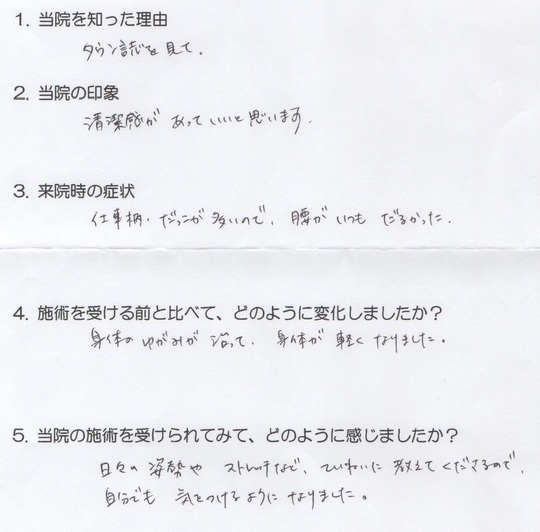 1. 当院を知った理由
タウン誌を見て.
2. 当院の印象
清潔感が あって いいと思います.
3. 来院時の症状
仕事柄、だっこが多いので、腰が いつも だるかった.
4. 施術を受ける前と比べて、どのように変化しましたか?
身体の ゆがみが 治って、身体が 軽く なりました。
5. 当院の施術を受けられてみて、どのように感じましたか?
日々の 姿勢や ストレッチなど、ていねいに 教えて くださるので、
自分でも 気をつけるように なりました。